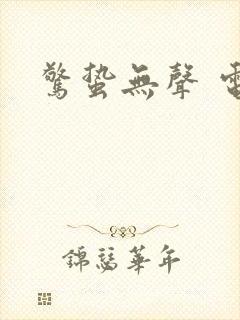 驚蟄無聲 電
錦瑟華年